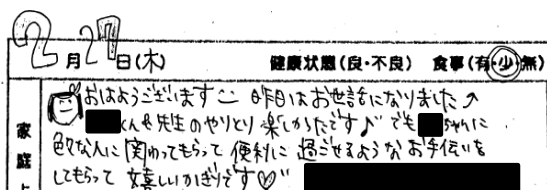 2月27日(木) 健康状態(良・不良) 食事(有・少・無)
おはようございます 昨日はお世話になりました↗
くんや先生のやりとり楽しかったです♪でも ちゃんに
色々な人に関わってもらって便利に過ごせるようなお手伝いを
してもらって嬉しいかぎりです♡
家庭